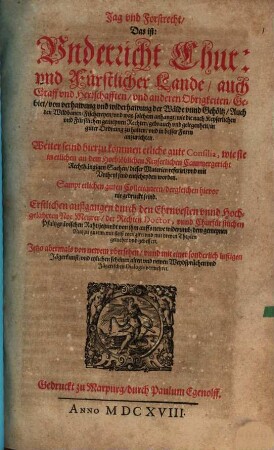 Jag und Forstrecht/
Das ist:
Vnderricht Chur-
vnd Fürstlicher Lande/ auch
Graff vnd Herrschafften/ vnd anderen Obrigkeiten/ Ge-
biet/ von verhawung vnd widerhawung der Wälde vnnd Gehöltz/ Auch
der Wildbanen/ Fischereyen/ vnd was solchem anhangt/ wie die nach Keyserlichen
vnd Fürstlichen gemeynen Rechten/ gebrauch vnd gelegenheit/ in
guter Ordnung zuhalten/ vnd in besser Form
anzurichten.
Weiter seind hierzu kommen etliche gute Consilia, wie sie
in etlichen an dem Hochlöblichen Keyserlichen Cammergericht
Rechthängigen Sachen/ dieser Materien referirt/ vnd mit
Vrtheil seind entscheyden worden.
Sampt etlichen guten Collectaneen/ dergleichen hievor
nie getruckt seind.
Erstlichen außgangen durch den Ehrnvesten vnnd Hoch-
gelahrten Noe Meurer/ der Rechten Doctor, vnnd Churfürstlichen
Pfaltzgrävischen Raht/
Jetzo abermals von newem vbersehen/ vnnd mit einer sonderlich lustigen
Jägerkunst/ vnd etlichen schönen alten vnd newen Weydsprüchen vnd
Gedruckt zu Marpurg/ durch Paulum Egenolff.
ANNO M DC XVIII.